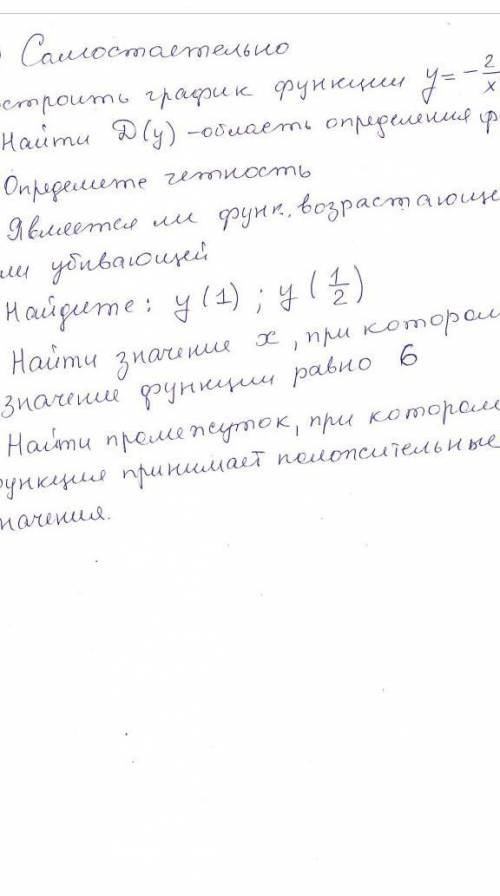 ) Самостаетельно
остроить график функции y = - 2/x
Найти D(y) - область определения ф
Определете четность
Является ли функ. возрастающе
ли убивающей
Найдите: y(1); y(1/2)
Найти значение x, при котором
значение функции равно 6
Найти промежуток, при котором
ункция принимает положительные
начения.